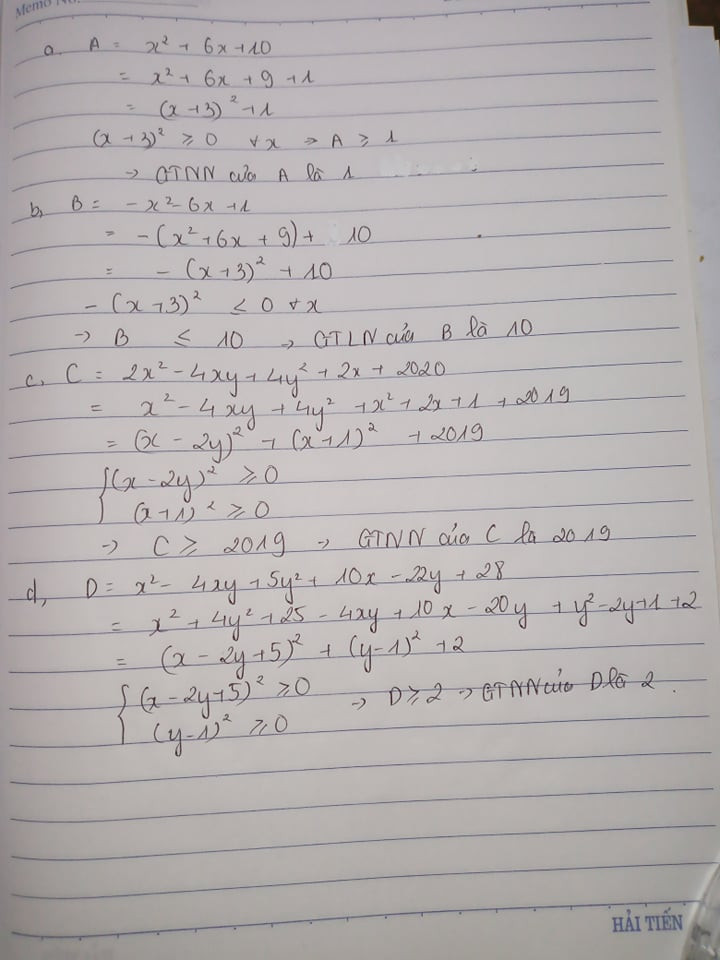 Memo No.
a. A = x² + 6x + 10
= x² + 6x + 9 + 1
= (x + 3)² + 1
(x + 3)² ≥ 0 ∀x → A ≥ 1
→ GTNN của A là 1
b, B = -x² - 6x + 1
= -(x² + 6x + 9) + 10
= -(x + 3)² + 10
-(x + 3)² ≤ 0 ∀x
→ B ≤ 10 → GTLN của B là 10
c, C = 2x² - 4xy + 4y² + 2x + 2020
= x² - 4xy + 4y² + x² + 2x + 1 + 2019
= (x - 2y)² + (x + 1)² + 2019
{(x - 2y)² ≥ 0
(x + 1)² ≥ 0
→ C ≥ 2019 → GTNN của C là 2019
d, D = x² - 4xy + 5y² + 10x - 22y + 28
= x² + 4y² + 25 - 4xy + 10x - 20y + y² - 2y + 1 + 2
= (x - 2y + 5)² + (y - 1)² + 2
{(x - 2y + 5)² ≥ 0 → D ≥ 2 → GTNN của D là 2.
(y - 1)² ≥ 0
HẢI TIẾN